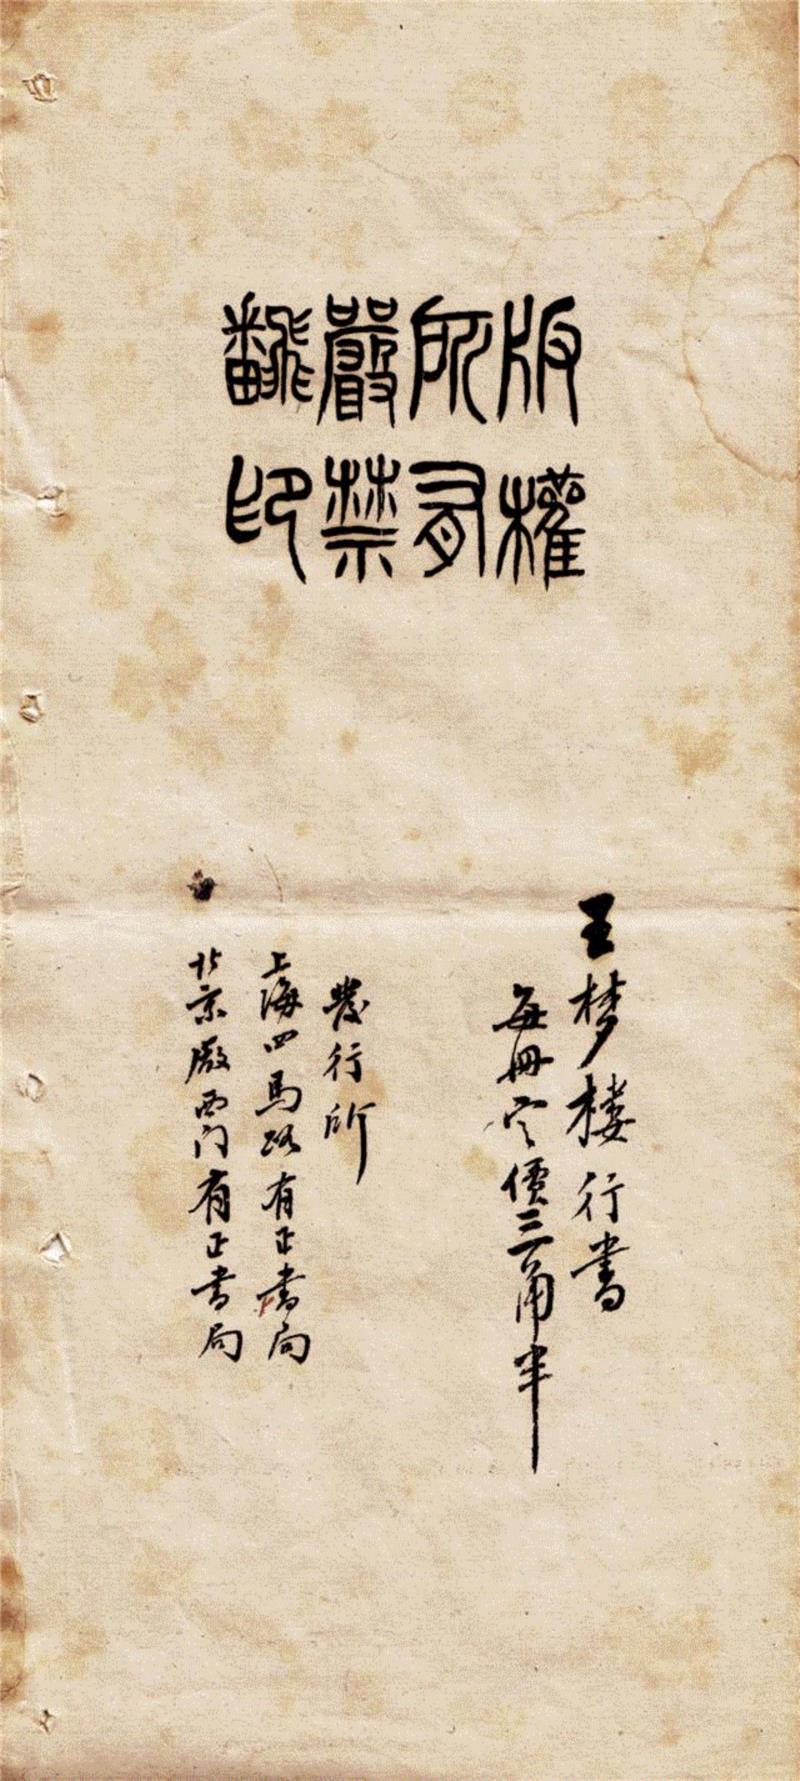 版權
所有
嚴禁
翻印
王梦楼行書
每冊定價三角半
發行所
上海四馬路有正書局
北京厰西门有正書局